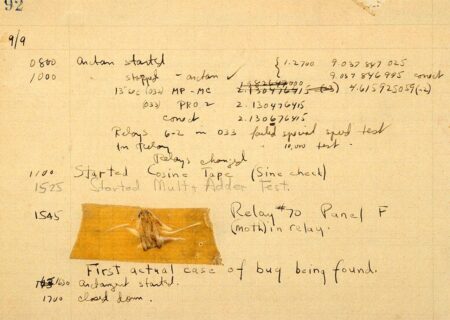 92
9/9
0800 Antan started { 1.2700 9.037 847 025
1000 " stopped - antan ✓ 9.037 846 995 conect
13"uc (032) MP - MC 2.130476415 4.615925059(-2)
(033) PRO 2 2.130476415
conect 2.130676415
Relays 6-2 in 033 failed special speed test
In Relay " 10,000 test .
Relays changed
1100 Started Cosine Tape (Sine check)
1525 Started Mult+Adder Test.
1545 Relay #70 Panel F
(moth) in relay.
First actual case of bug being found.
1630 antangent started.
1700 closed down.